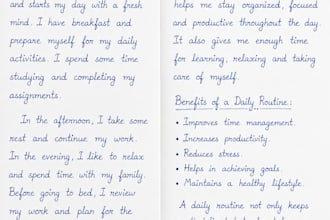 and starts my day with a fresh
mind. I have breakfast and
prepare myself for my daily
activities. I spend some time
studying and completing my
assignments.
In the afternoon, I take some
rest and continue my work.
In the evening, I like to relax
and spend time with my family.
Before going to bed, I review
my work and plan for the
helps me stay organized, focused
and productive throughout the day.
It also gives me enough time
for learning, relaxing and taking
care of myself.
Benefits of a Daily Routine:
• Improves time management.
• Increases productivity.
• Reduces stress.
• Helps in achieving goals.
• Maintains a healthy lifestyle.
A daily routine not only keeps